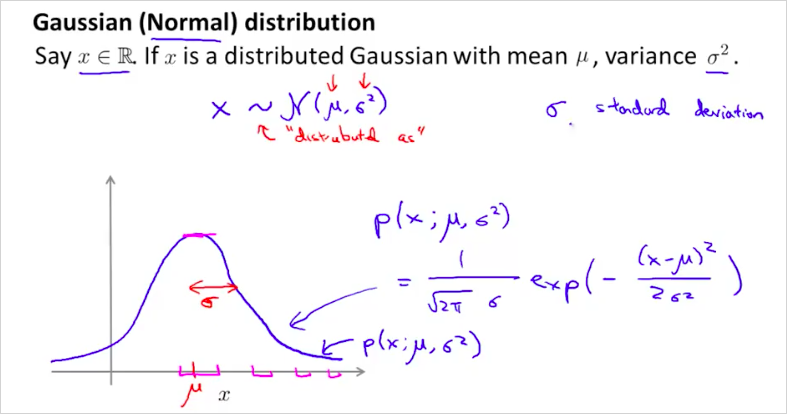 Gaussian (Normal) distribution
Say x ∈ ℝ. If x is a distributed Gaussian with mean μ, variance σ².
x ~ N(μ, σ²)
σ. standard deviation
"distributed as"
p(x; μ, σ²)
= 1/(√2π σ) exp(- (x-μ)²/2σ²)
σ
p(x; μ, σ²)
μ x